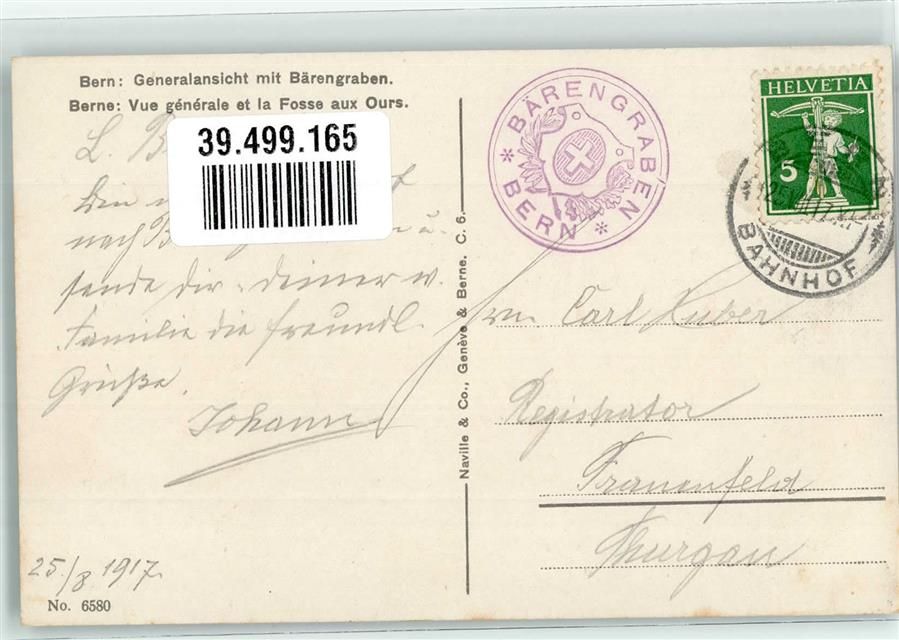 Bern: Generalansicht mit Bärengraben.
Berne: Vue générale et la Fosse aux Ours.
39.499.165
L. B
nach B
sende dir, deiner w.
Familie die freundl.
Grüße.
Johann
25./8 1917.
No. 6580
Naville & Co., Genève & Berne. C. 6.
* BÄRENGRABEN * BERN
HELVETIA
5
BAHNHOF
Carl Huber
Registrator
Frauenfeld
Thurgau